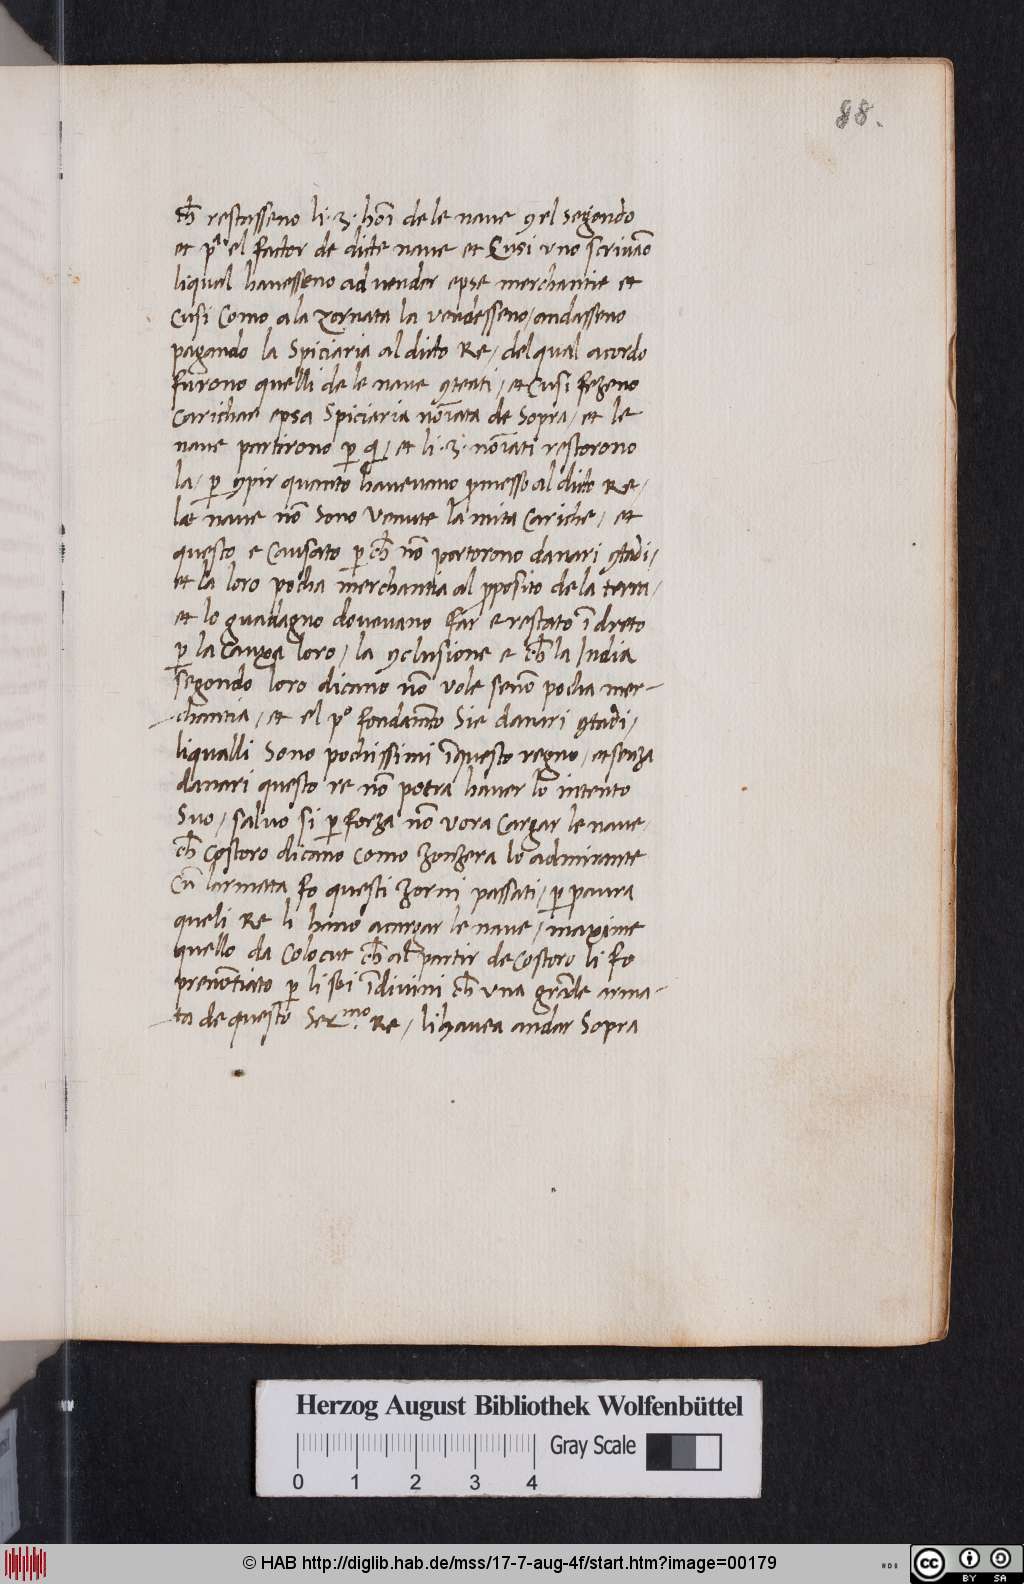 88.
ch̄ restasseno li .3. hoı̄ de le naue ꝯel segondo
et p.o el factor de dicte naue et Cusi vno scriuāo
liqual hauesseno ad vender epse merchantie et
Cusi Como a la zornata la vendesseno / andasseno
pagando la Spiciaria al dicto Re / del qual acordo
furono quelli de le naue ꝯtenti / et Cusi fezeno
Carichar epsa Spiciaria noı̄ata de Sopra / et le
naue partirono ꝑ qi / et li .3. noı̄ati restorono
la / ꝑ ꝯpir quanto haueuano ꝓmesso al dicto Re /
le naue nō Sono venute la mita Cariche / et
questo e Causato ꝑ ch̄ nō portorono danari ꝯtādi /
et la loro pocha merchantia al ꝓposito de la terra /
et lo guadagno doueuano far e restato ī dreto
ꝑ la Causa loro / la ꝯclusione e ch̄ la India
segondo loro dicano nō vole senō pocha mer-
chantia / et el p.o fondam̄to Sie danari ꝯtādi /
liqualli Sono pochissimi ī questo regno / et senza
danari questo re nō potra hauer lo intento
Suo / saluo si ꝑ forza nō vora Cargar le naue
ch̄ Costoro dicano como zonzera lo admirante
Cū larmata fo questi zorni passati / ꝑ paura
queli Re li hano a cargar le naue / maxime
quello da Colocut ch̄ al partir de Costoro li fo
prenōtiato ꝑ li soi īdiuini ch̄ vna grāde arma-
ta de questo Ser.mo Re / li hauea andar Sopra
Herzog August Bibliothek Wolfenbüttel
Gray Scale
0 1 2 3 4
© HAB http://diglib.hab.de/mss/17-7-aug-4f/start.htm?image=00179
cc BY SA